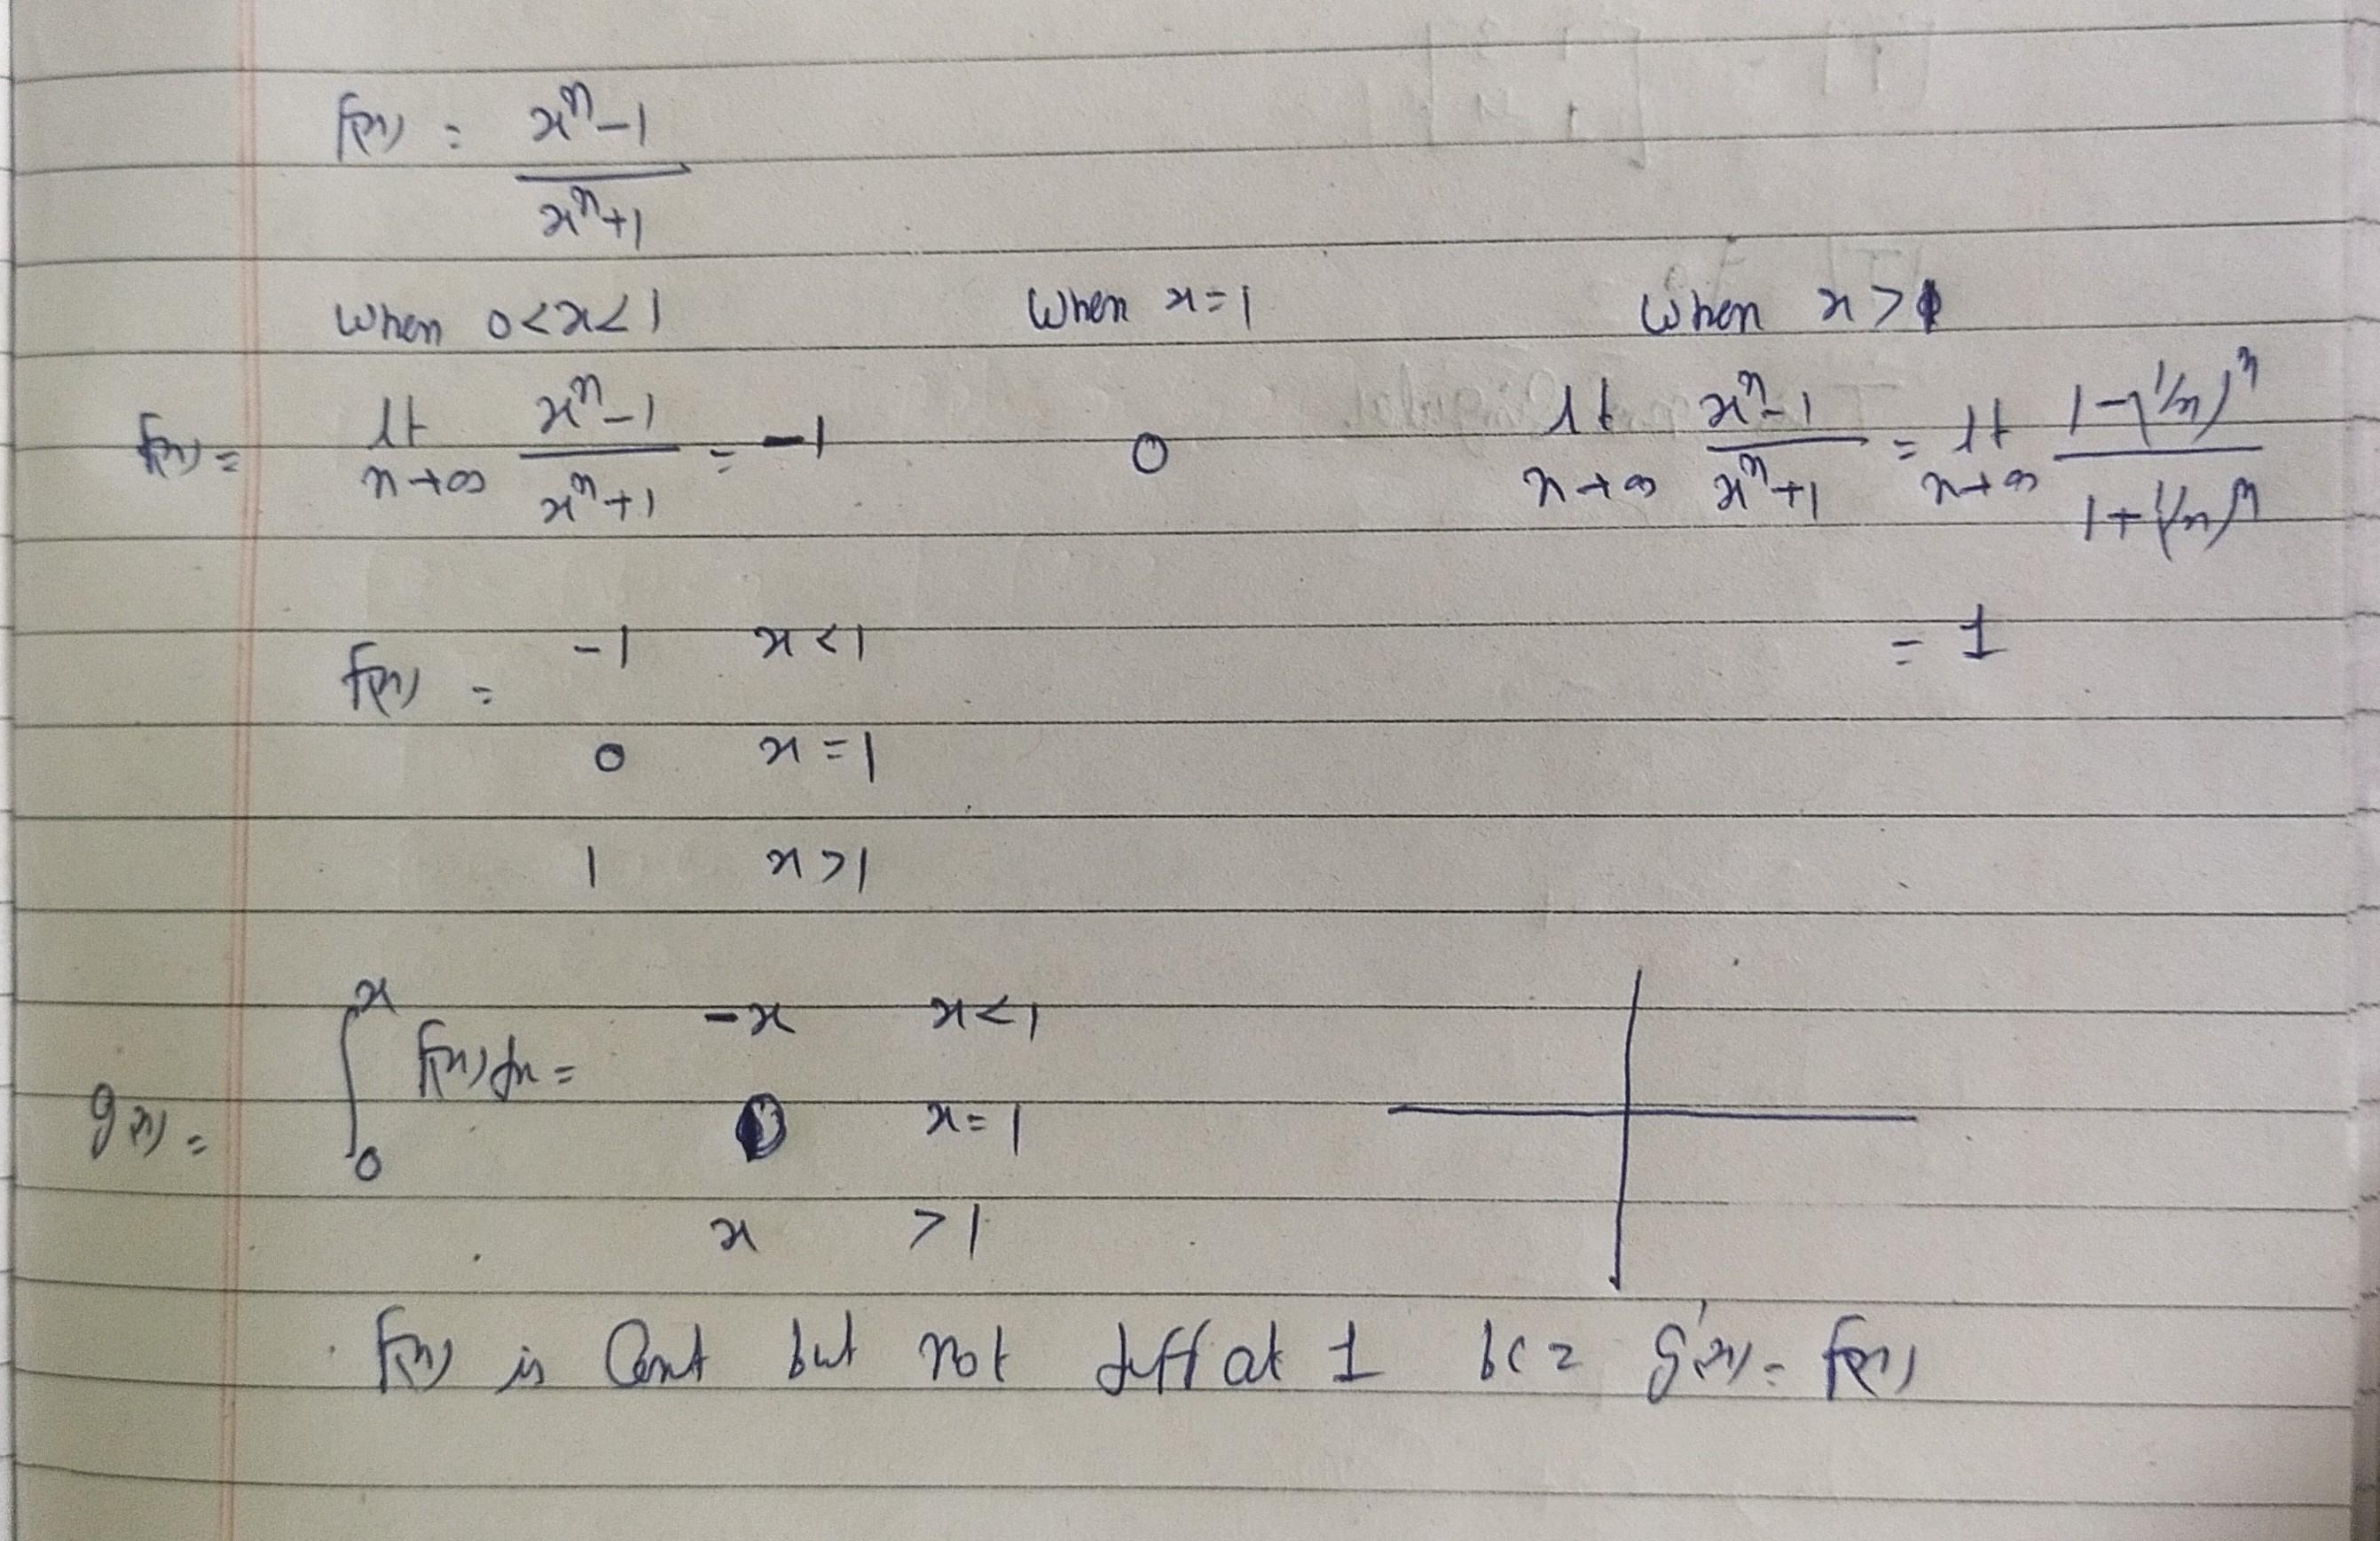 f(x) = (x^n - 1)/(x^n + 1)
When 0<x<1 When x=1 When x>1
f(x) = lt n→∞ (x^n - 1)/(x^n + 1) = -1 0 lt n→∞ (x^n - 1)/(x^n + 1) = lt n→∞ (1-(1/x)^n)/(1+(1/x)^n)
= 1
f(x) = -1 x<1
0 x=1
1 x>1
g(x) = ∫_0^x f(x) dx = -x x<1
x=1
x >1
f(x) is Cont but not diff at 1 bcz g'(x) = f(x)